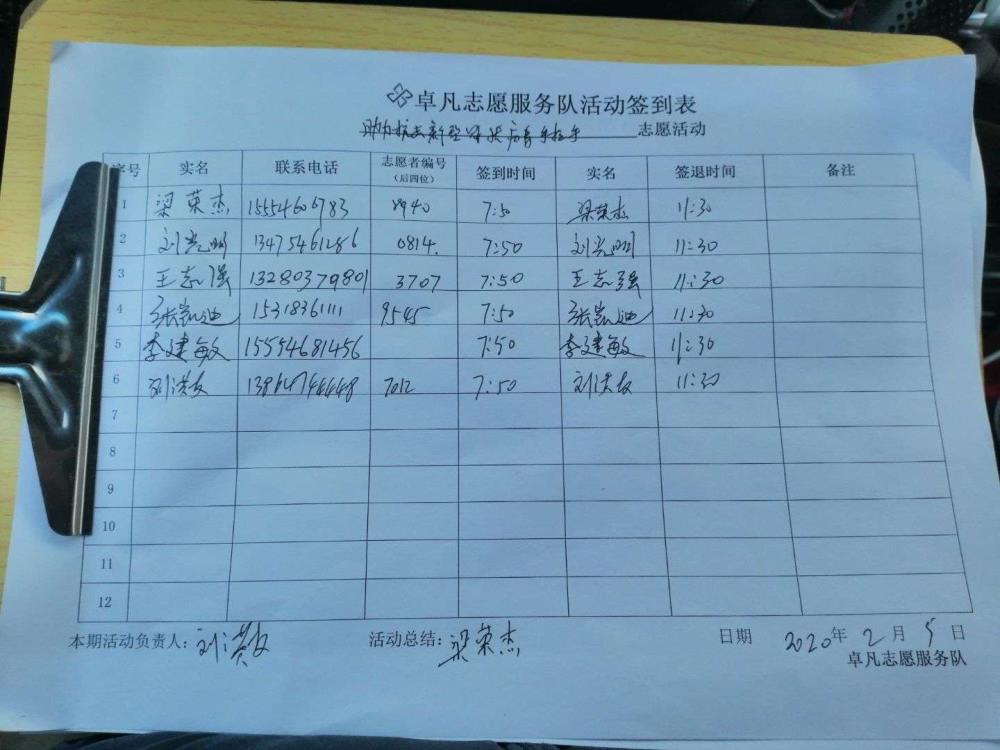 卓凡志愿服务队活动签到表
助力抗击新型冠状病毒手拉手 志愿活动
序号 实名 联系电话 志愿者编号（后四位） 签到时间 实名 签退时间 备注
1 梁荣杰 15554606783 8940 7:50 梁荣杰 11:30
2 刘光明 13475461286 0814. 7:50 刘光明 11:30
3 王志强 13280379801 3707 7:50 王志强 11:30
4 张凯迪 15318361111 9545 7:50 张凯迪 11:30
5 李建敏 15554681456 7:50 李建敏 11:30
6 刘洪友 7012 7:50 刘洪友 11:30
7
8
9
10
11
12
本期活动负责人：刘洪友 活动总结：梁荣杰 日期 2020年2月5日
卓凡志愿服务队